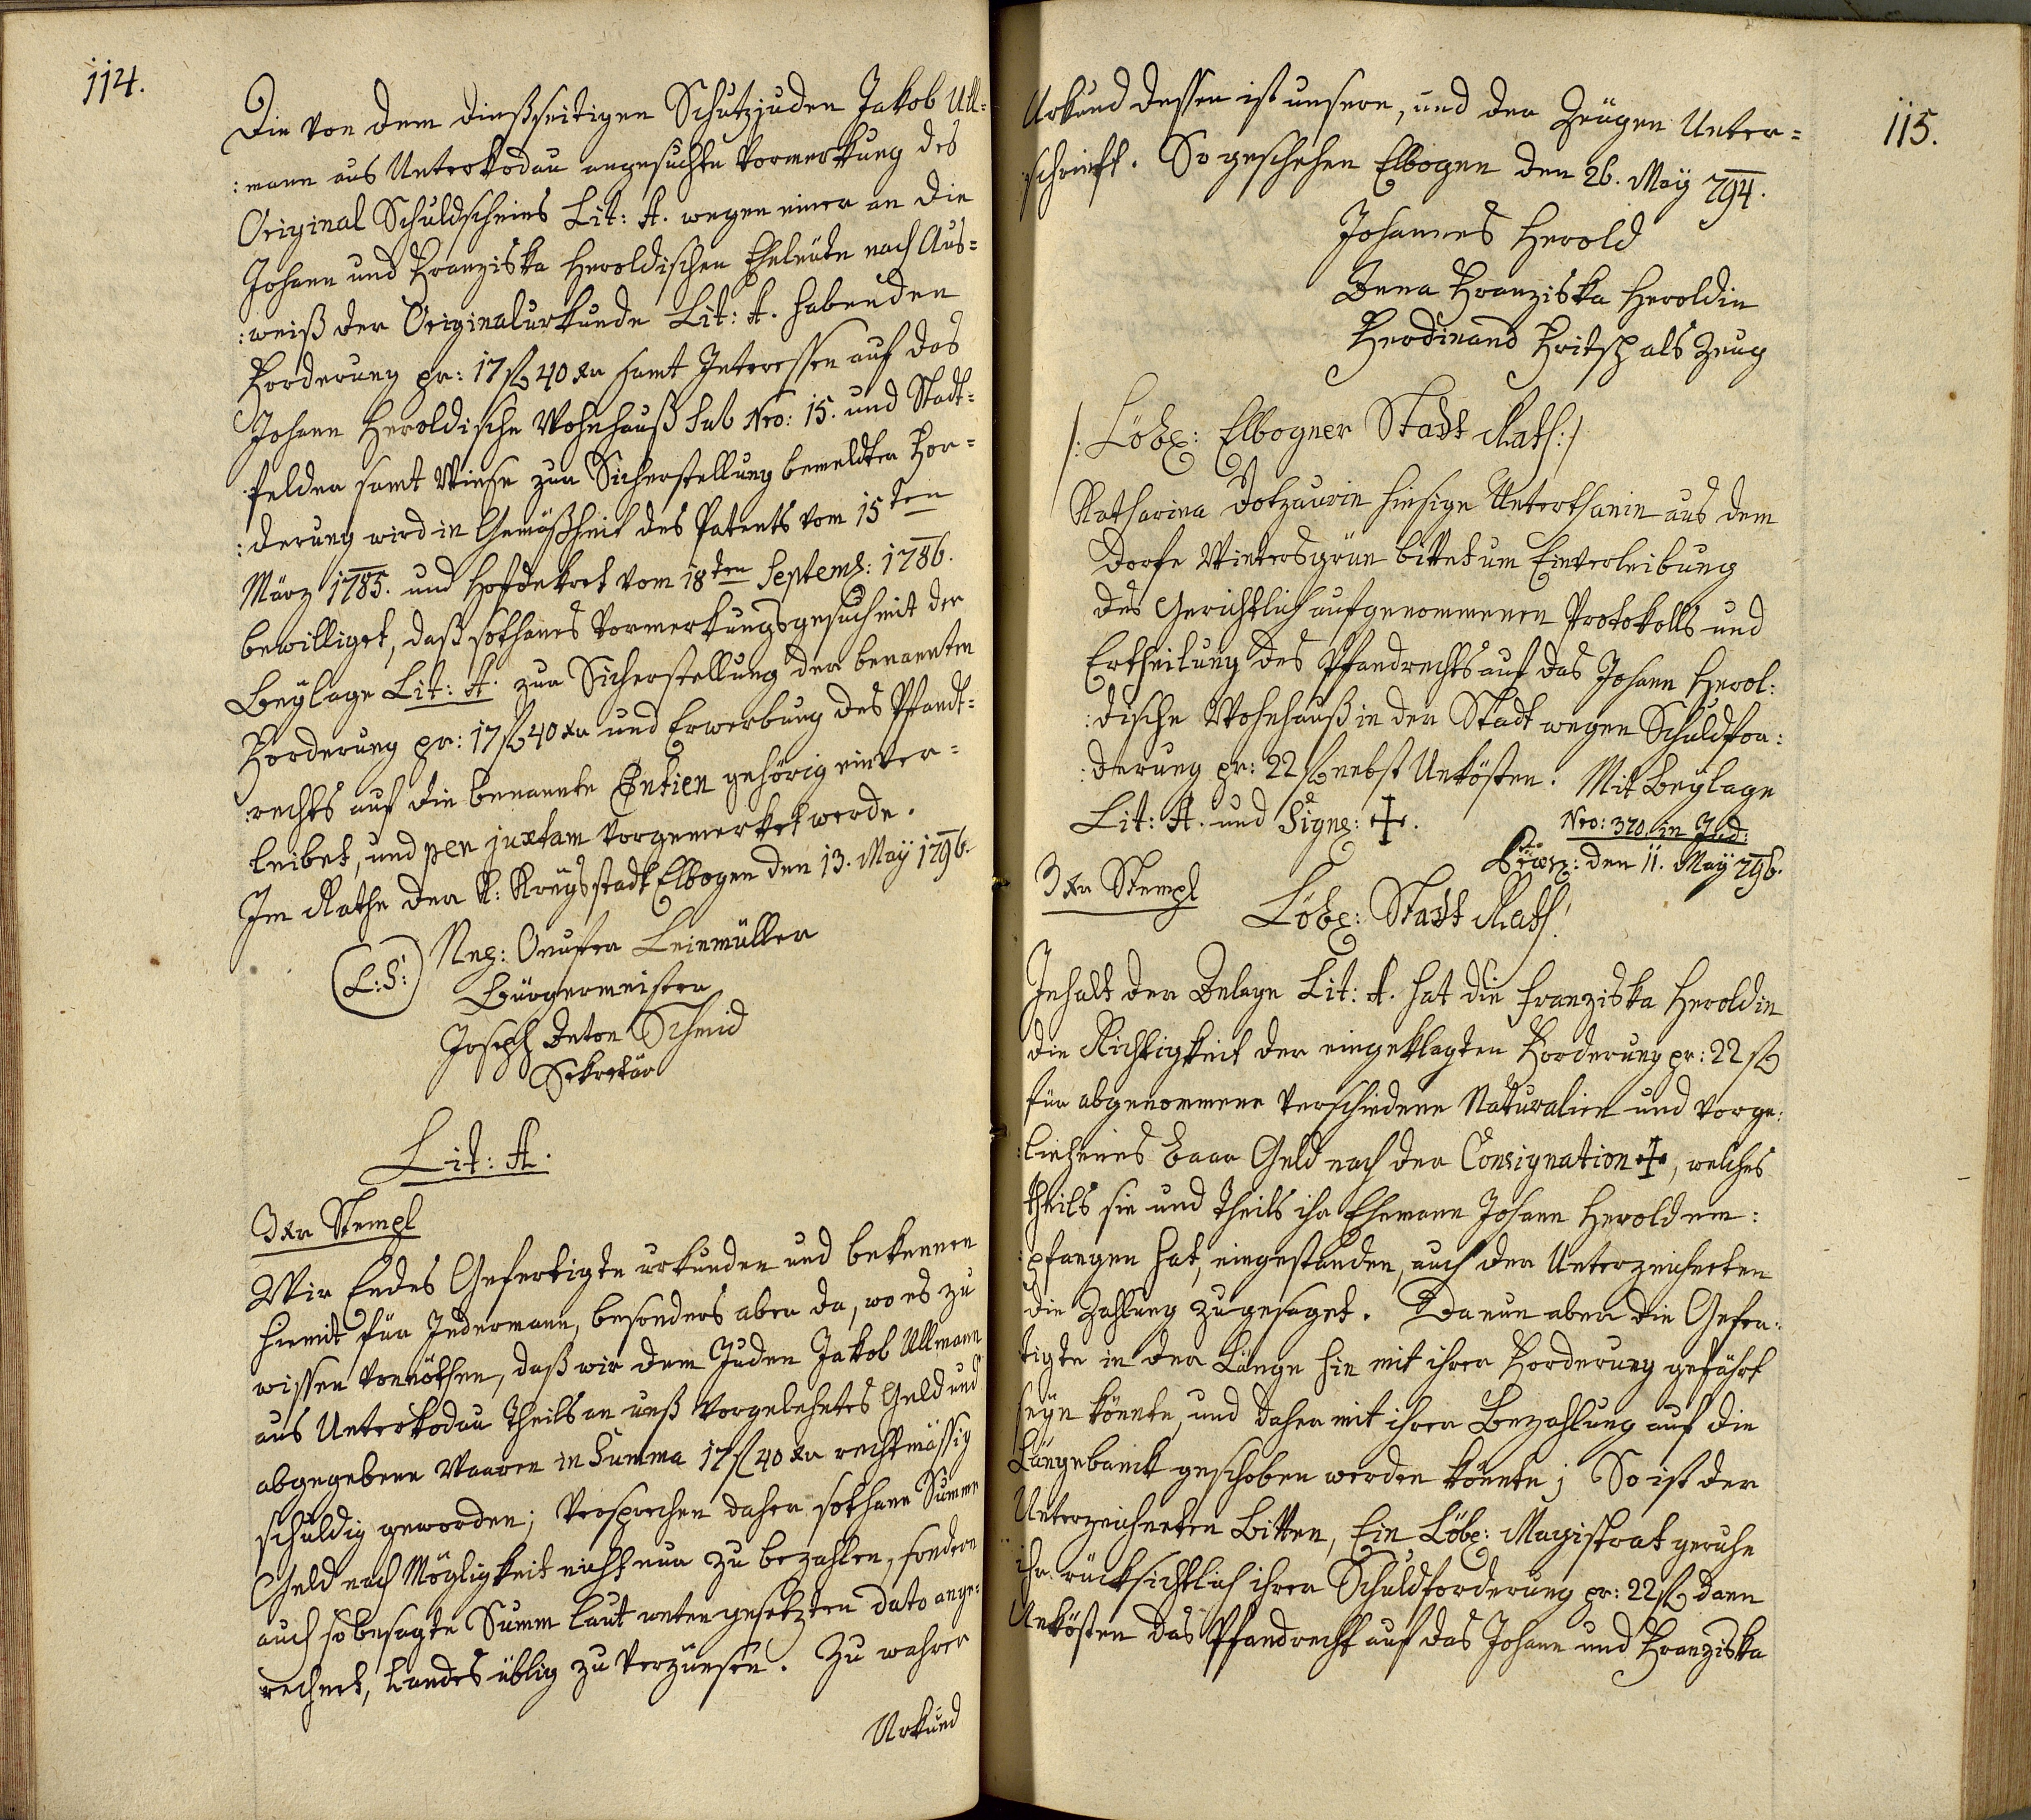 114.
Die von dem dießseitigen Schutzjuden Jakob Ull-
:mann aus Unterkodau angesuchte Vormerkung des
Original Schuldscheins Lit: A. wegen einer an die
Johann und Franziska Heroldischen Eheleute nach Aus-
:weiß der Originalurkunde Lit: A. habenden
Forderung pr: 17 fl 40 xr samt Interessen auf das
Johann Heroldische Wohnhauß sub Nro: 15. und Stadt-
felder samt Wiese zur Sicherstellung bemeldter For-
:derung wird in Gemäßheit des Patents vom 15ten
März 1785. und Hofdekret vom 18ten Septemb: 1786.
bewilliget, daß sothanes Vormerkungsgesuch mit der
Beylage Lit: A. zur Sicherstellung der benannten
Forderung pr: 17 fl 40 xr und Erwerbung des Pfandt-
:rechts auf die benannte Entien gehörig einver-
leibet, und per juxtam vorgemerket werde.
Im Rathe der K: Kreÿsstadt Elbogen den 13. Maÿ 1796.
(L:S:) Nep: Onufer Leinmüller
Bürgermeister
Joseph Anton Schmid
Sekretär
Lit: A.
3 xr Stempl
Wir Endes Gefertigte urkunden und bekennen
hiemit für Jedermann, besonders aber da, wo es zu
wissen vonnöthen, daß wir dem Juden Jakob Ullmann
aus Unterkodau theils an unß vorgelehntes Geld und
abgegebene Waaren in Summa 17 fl 40 xr rechtmässig
schuldig geworden; Versprechen daher sothane Summe
Geld nach Mögligkeit nicht nur zu bezahlen, sondern
auch so besagte Summ laut untengesetzten dato ange-
rechnet, Landes üblig zu verzünsen. Zu wahrer
Urkund
115.
Urkund dessen ist unsere, und der Zeugen Unter-
:schrieft. So geschehen Elbogen den 26. Maÿ 794.
Johannes Herold
Anna Franziska Heroldin
Ferdinand Fritsch als Zeug
/: Löbl: Elbogner Stadt Rath :/
Katharina Dotzaurin hiesige Unterthanin aus dem
Dorfe Wintersgrün bittet um Einverleibung
des Gerichtlich aufgenommenen Protokolls und
Ertheilung des Pfandrechts auf das Johann Herol:
:dische Wohnhauß in der Stadt wegen Schuldfor:
:derung pr: 22 fl nebst Unkösten. Mit Beylage
Lit: A. und Sign: ✠.
Nro: 370 in Jud:
den 11. Maÿ 796.
3 xr Stempl
Löbl: Stadt Rath!
Inhalt der Anlage Lit: A. hat die Franziska Heroldin
die Richtigkeit der eingeklagten Forderung pr: 22 fl
für abgenommene verschiedene Naturalien und vorge:
:liehenes baar Geld nach der Consignation ✠, welches
theils sie und theils ihr Ehemann Johann Herold em:
:pfangen hat, eingestanden, auch der Unterzeichneten
die Zahlung zugesaget. Da nun aber die Gefer:
tigte in der Länge hin mit ihrer Forderung gefährt
seÿn könnte, und daher mit ihrer Bezahlung auf die
Längebanck geschoben werden könnte; So ist der
Unterzeichneten Bitten, Ein Löbl: Magistrat geruhe
ihr rücksichtlich ihrer Schuldforderung pr: 22 fl dann
Unkösten das Pfandrecht auf das Johann und Franziska